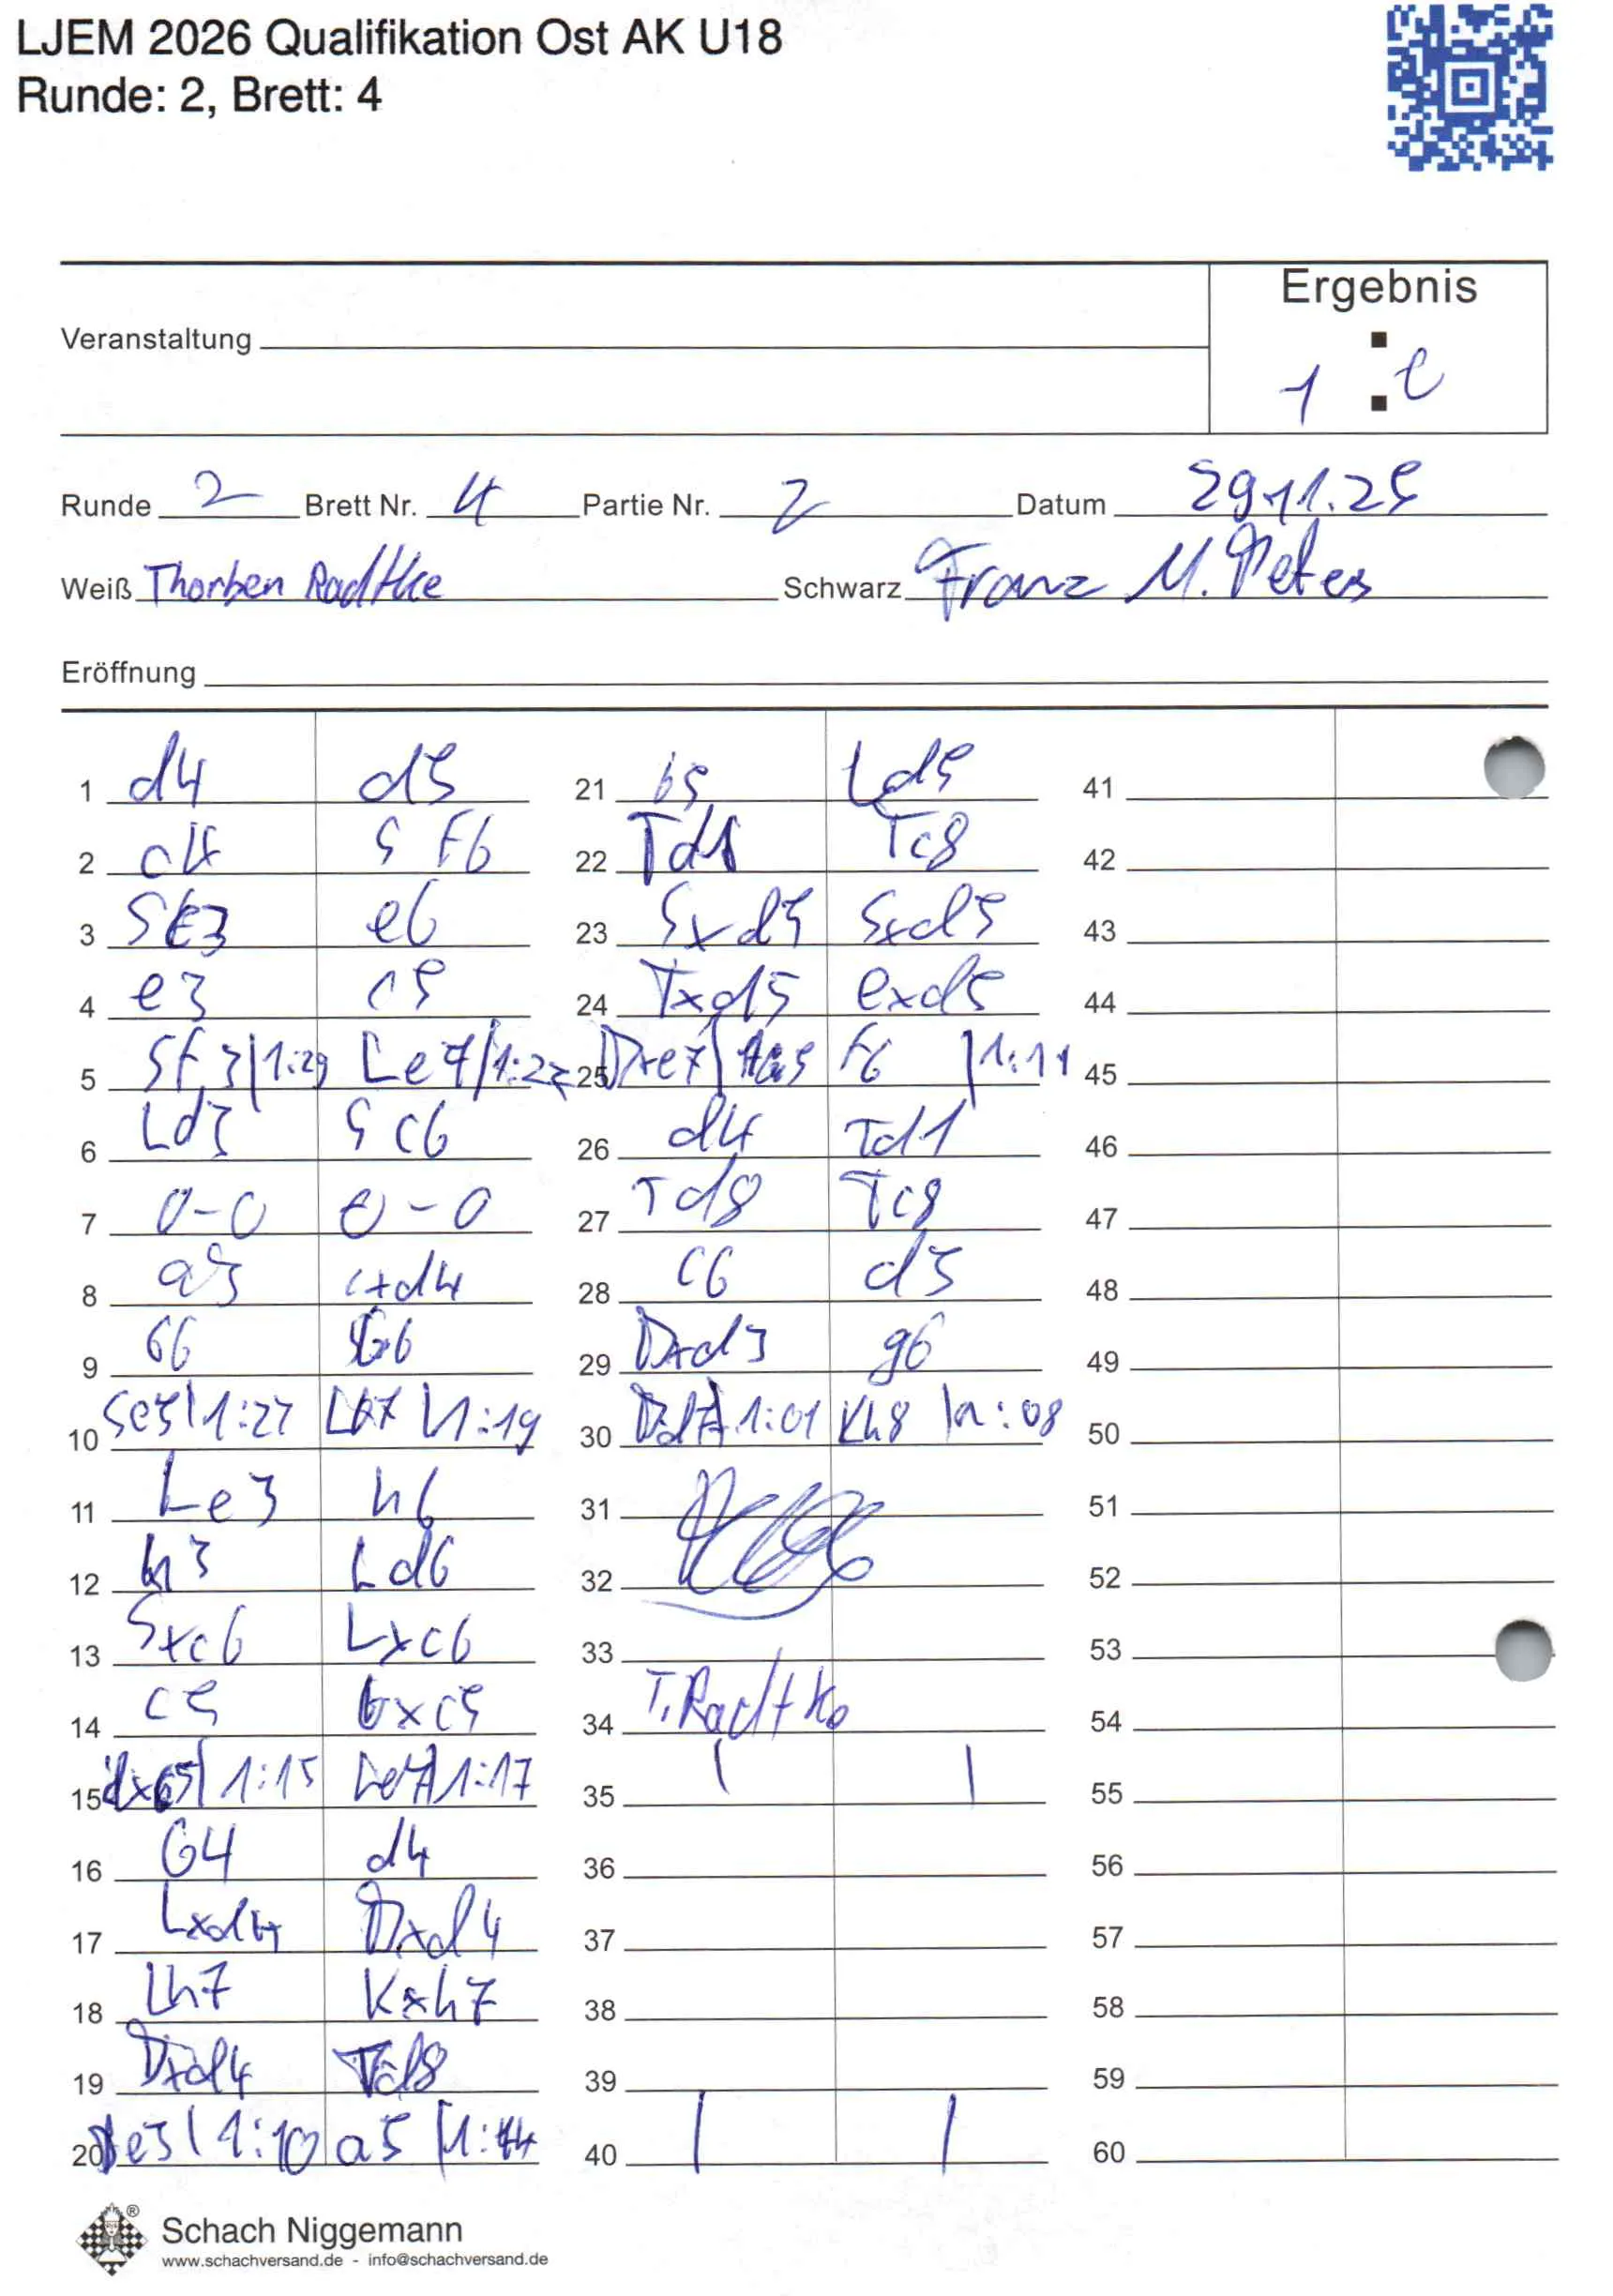 LJEM 2026 Qualifikation Ost AK U18
Runde: 2, Brett: 4
Ergebnis
Veranstaltung
1 :
Runde 2 Brett Nr. 4 Partie Nr. 2 Datum 29.11.25
Weiß Thorben Radtke Schwarz Franz M. Peters
Eröffnung
1 d4 d5 21 b5 Ld5 41
2 c4 Sf6 22 Td1 Tc8 42
3 e6 23 Sxd5 Sxd5 43
4 e3 c5 24 Txd5 exd5 44
5 Sf3|1:29 Le7|1:22 25 Dxe7| f6 |1:11 45
6 Ld3 Sc6 26 d4 Td1 46
7 0-0 0-0 27 Td8 Tc8 47
8 a3 cxd4 28 c6 d3 48
9 b6 29 Dxd3 g6 49
10 Se5|1:27 Lb7|1:19 30 1:01 Kh8 |1:08 50
11 Le3 h6 31 51
12 h3 Ld6 32 52
13 Sxc6 Lxc6 33 53
14 c5 bxc5 34 T. Radtke 54
15 dxc5|1:15 Le7|1:17 35 | | 55
16 b4 d4 36 56
17 Lxd4 Dxd4 37 57
18 Lh7 Kxh7 38 58
19 Dxd4 39 59
20 De3|1:10 a5 |1:14 40 | | 60
®
Schach Niggemann
www.schachversand.de - info@schachversand.de